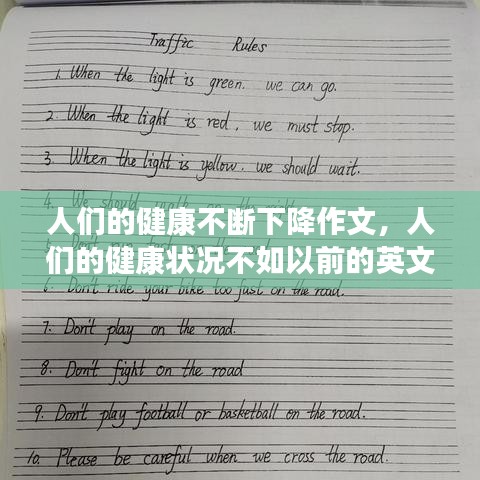 Traffic Rules
1. When the light is green. we can go.
2. When the light is red, we must stop.
3. When the light is yellow. we should wait.
4. We should
人们的健康不断下降作文，人
们的健康状况不如以前的英文
6. Don't ride your bike too fast on the road.
7. Don't play on the road.
8. Don't fight on the road
9. Don't play football or basketball on the road.
10. Please be careful when we cross the road.